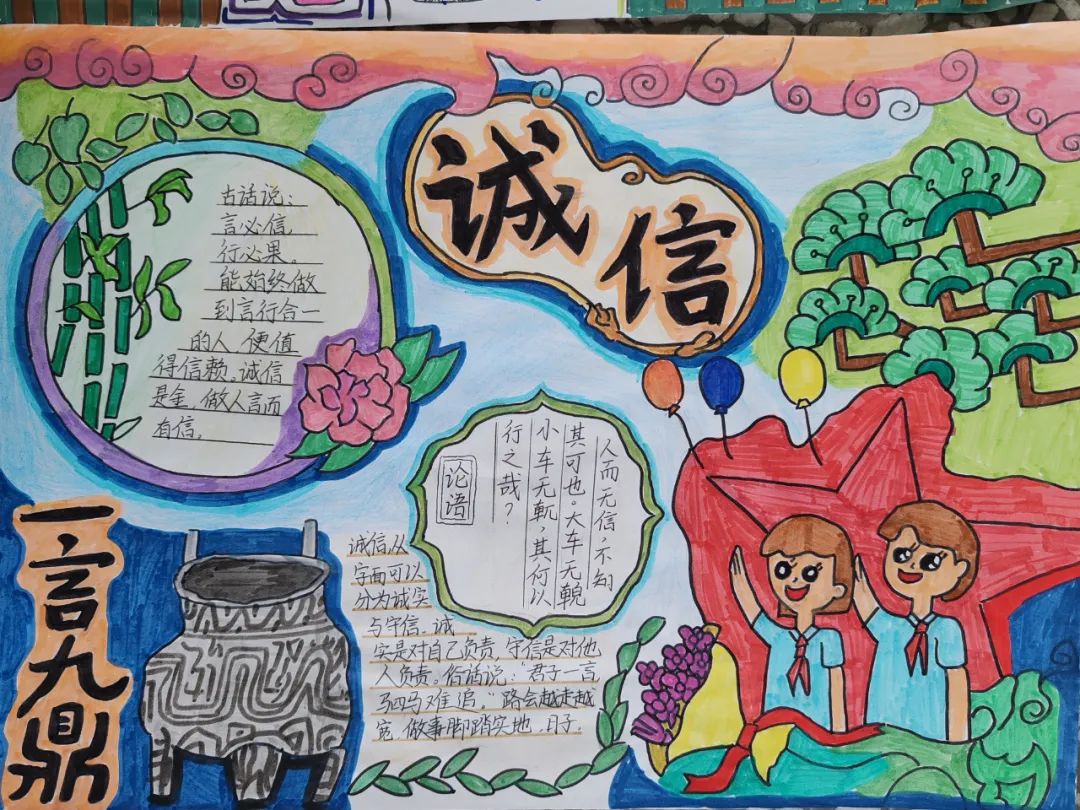 诚信
古话说:
言必信,
行必果。
能始终做
到言行合一
的人,便值
得信赖。诚信
是金,做人言而
有信。
人而无信,不知
其可也。大车无輗
小车无軏,其何以
行之哉?
论语
一言九鼎
诚信,从
字面可以
分为诚实
与守信。诚
实是对自己负责,守信是对他
人负责。俗话说:“君子一言
驷马难追。”路会越走越
宽,做事脚踏实地,日子.